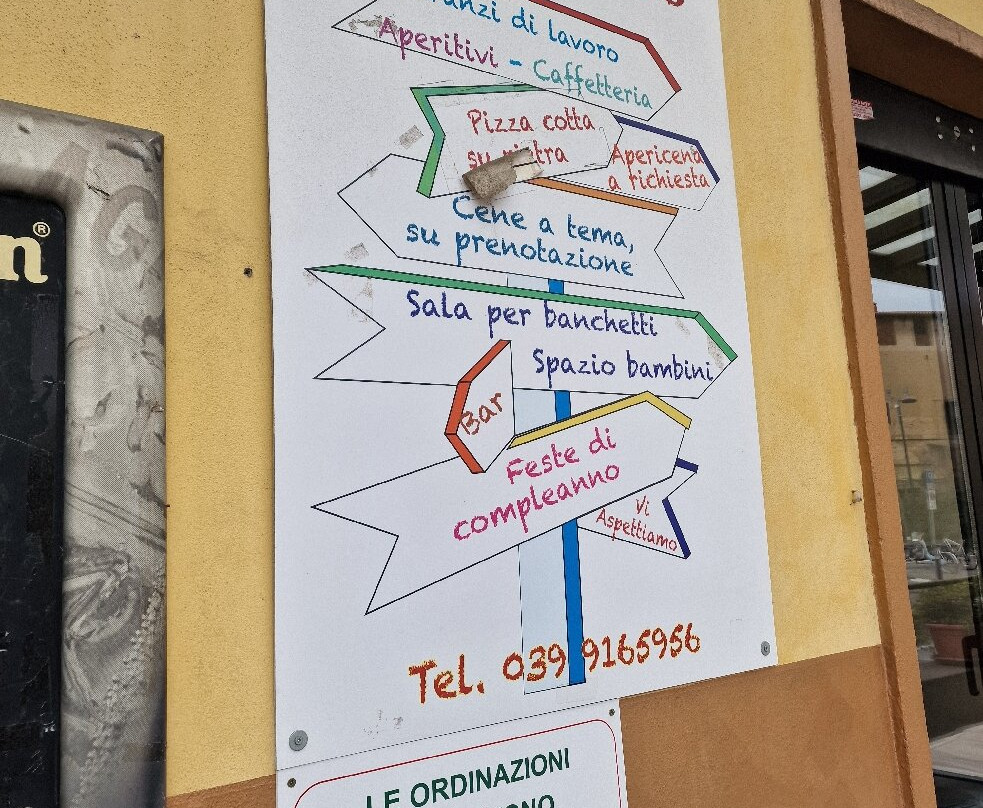 di lavoro
Aperitivi - Caffetteria
Pizza cotta
su pietra
Apericena
a richiesta
Cene a tema,
su prenotazione
Sala per banchetti
Spazio bambini
Bar
Feste di
compleanno
Vi
Aspettiamo
Tel. 039 9165956
LE ORDINAZIONI
n®